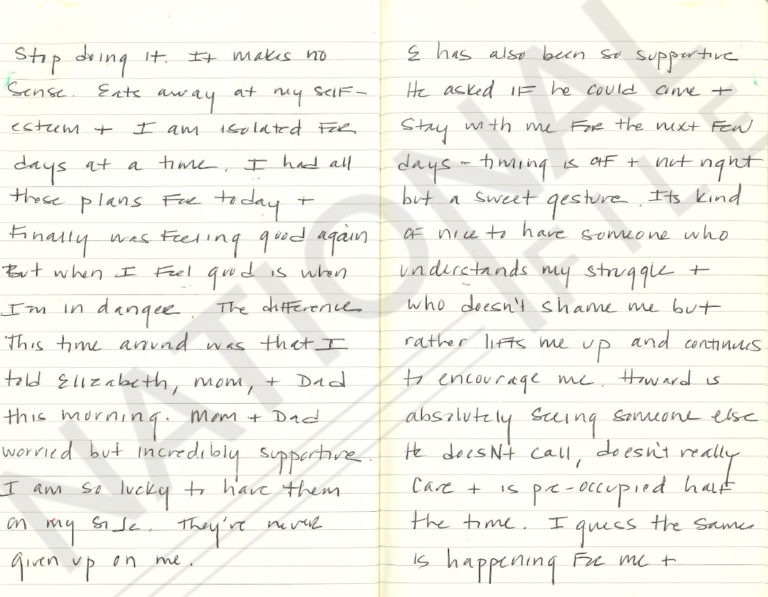 Stop doing it. It makes no
Sense. Eats away at my self-
esteem + I am isolated for
days at a time. I had all
those plans for today +
finally was feeling good again
But when I feel good is when
I'm in danger. The difference
This time around was that I
told Elizabeth, mom, + Dad
this morning. Mom + Dad
worried but incredibly supportive.
I am so lucky to have them
on my side. They've never
given up on me.
E has also been so supportive
He asked if he could come +
Stay with me for the next few
days - timing is off + not right
but a sweet gesture. Its kind
of nice to have someone who
understands my struggle +
who doesn't shame me but
rather lifts me up and continues
to encourage me. Howard is
absolutely seeing someone else
He doesn't call, doesn't really
care + is pre-occupied half
the time. I guess the same
is happening for me +
NATIONAL
FILE